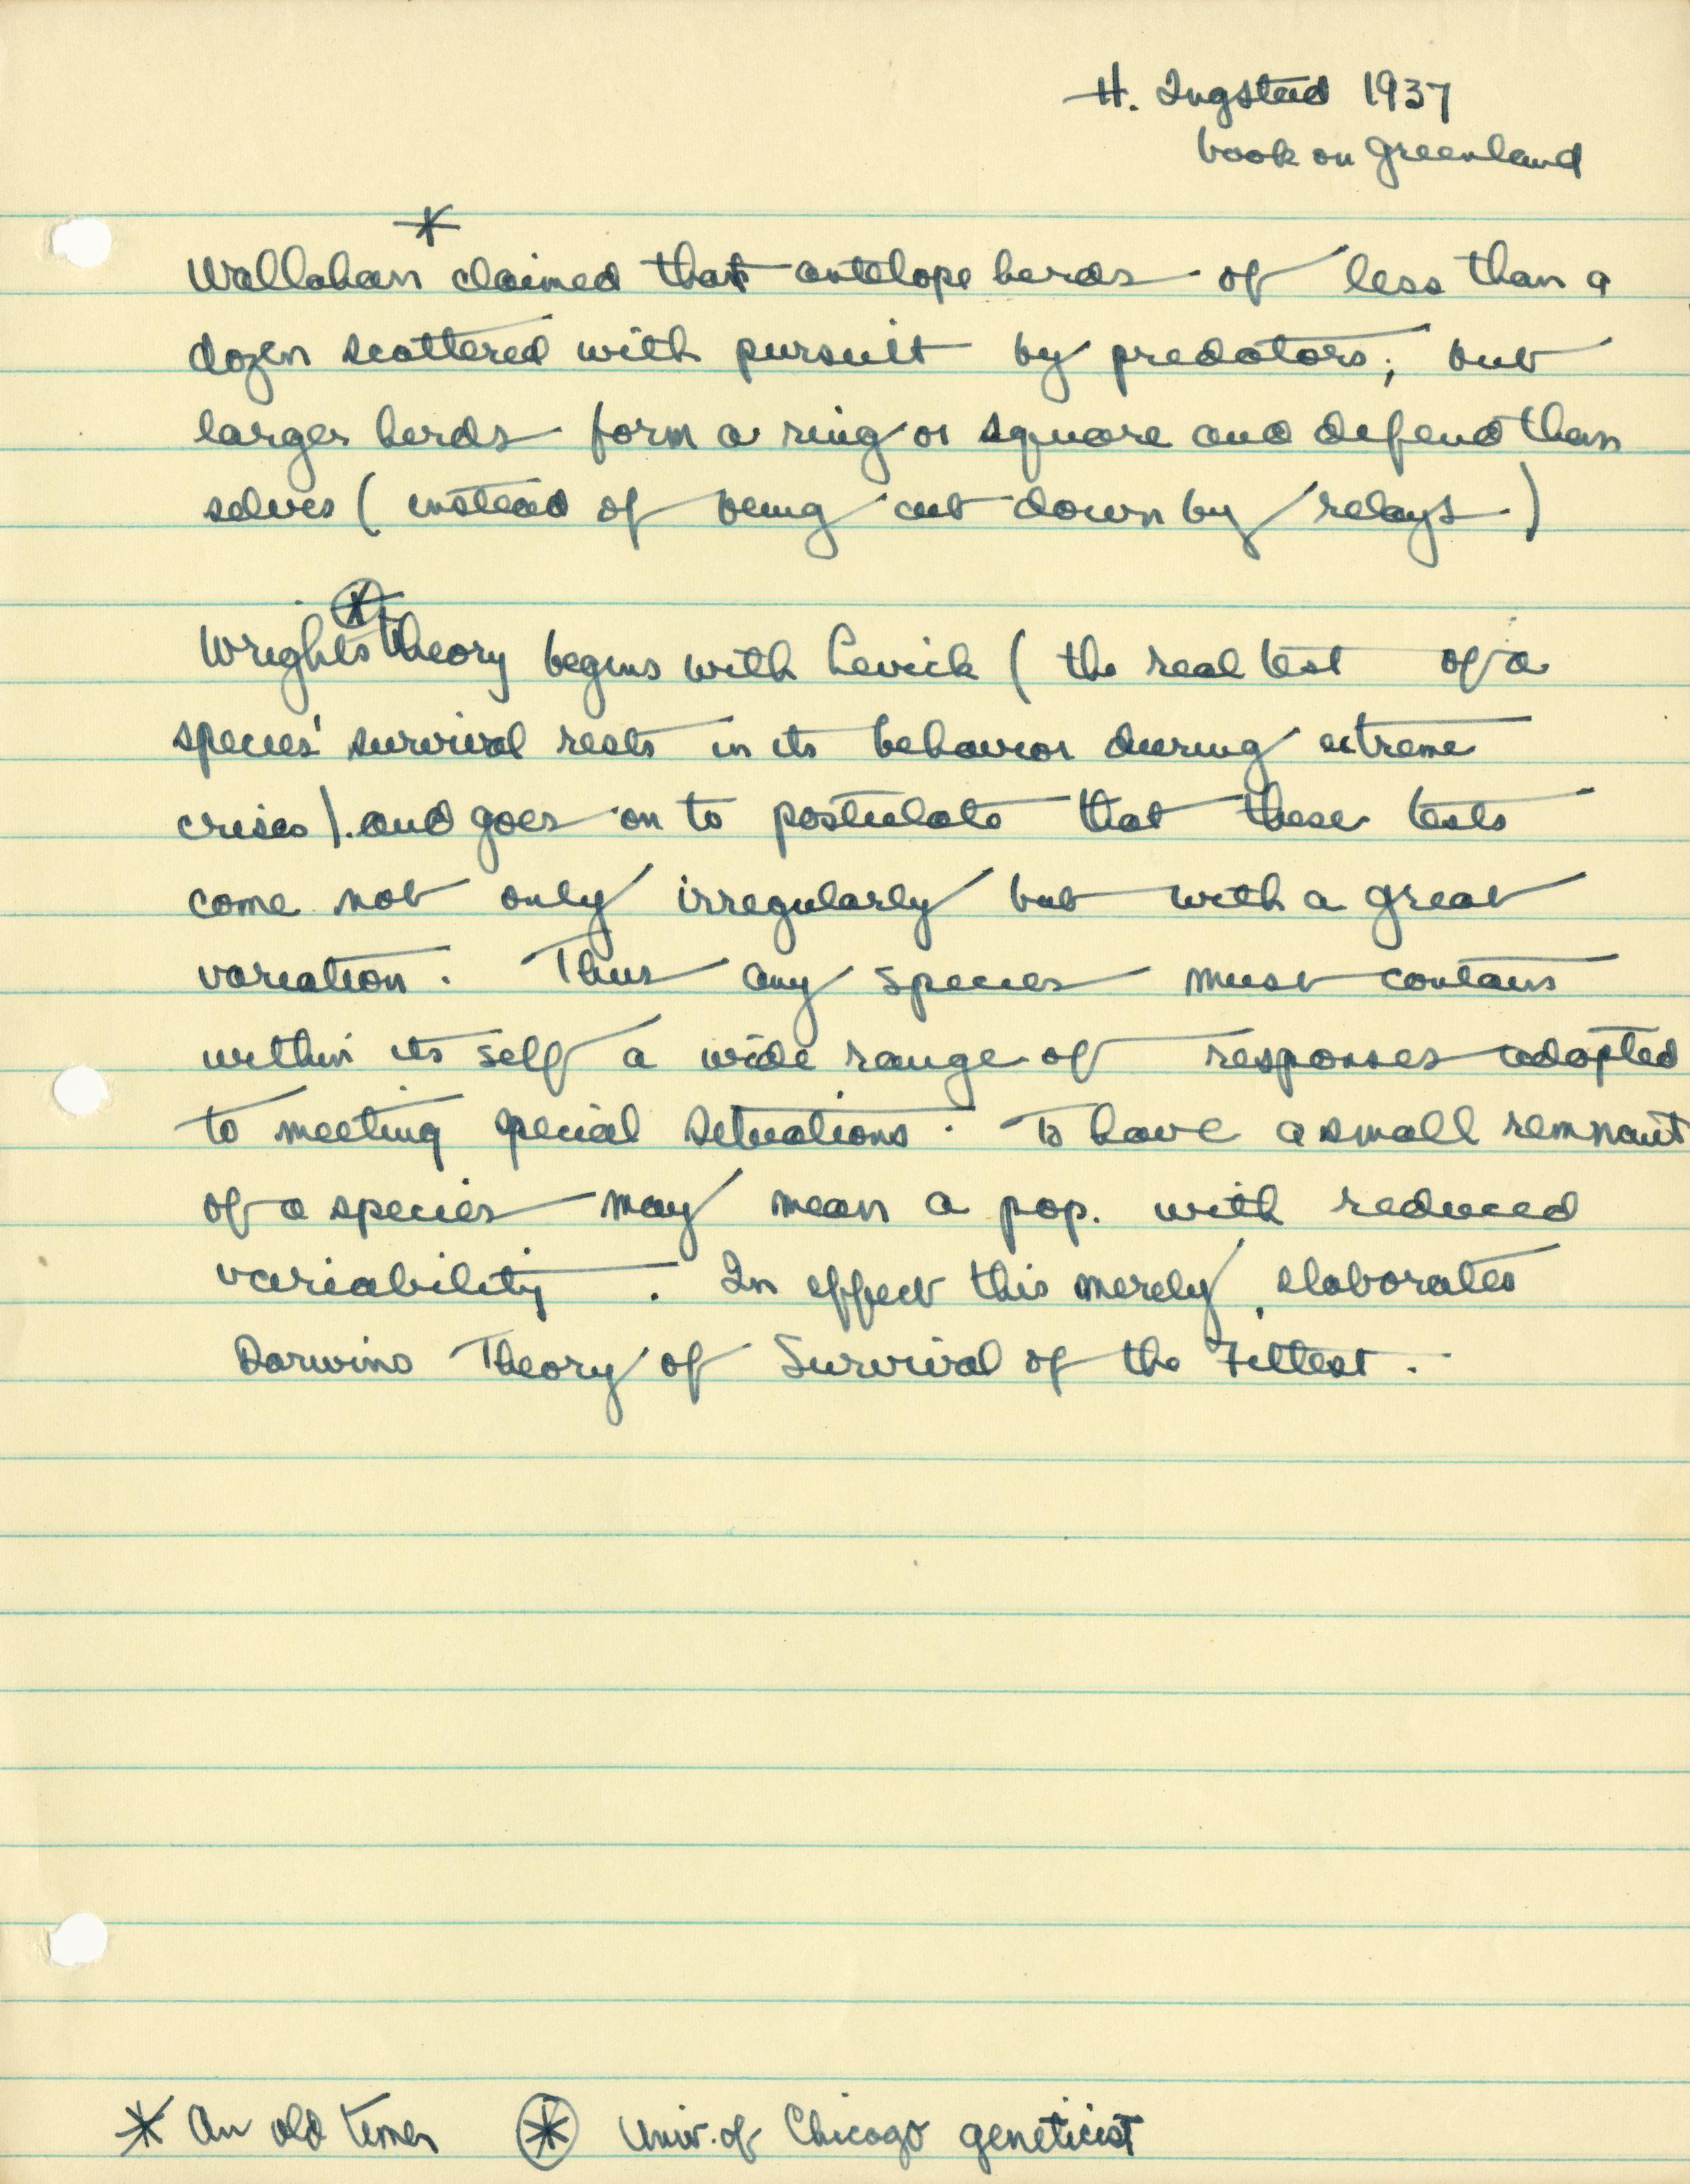 H. Ingstad 1937
book on Greenland
*
Wallahan claimed that antelope herds of less than a
dozen scattered with pursuit by predators; but
larger herds form a ring or square and defend them
selves ( instead of being cut down by relays.)
*
Wrights theory begins with Levick ( the real test of a
species' survival rests in its behavior during extreme
crises). and goes on to postulate that these tests
come not only irregularly but with a great
variation. Thus any species must contain
within its self a wide range of responses adapted
to meeting special situations. To have a small remnant
of a species may mean a pop. with reduced
variability. In effect this merely elaborates
Darwins Theory of Survival of the Fittest.
* An old timer * Univ. of Chicago geneticist